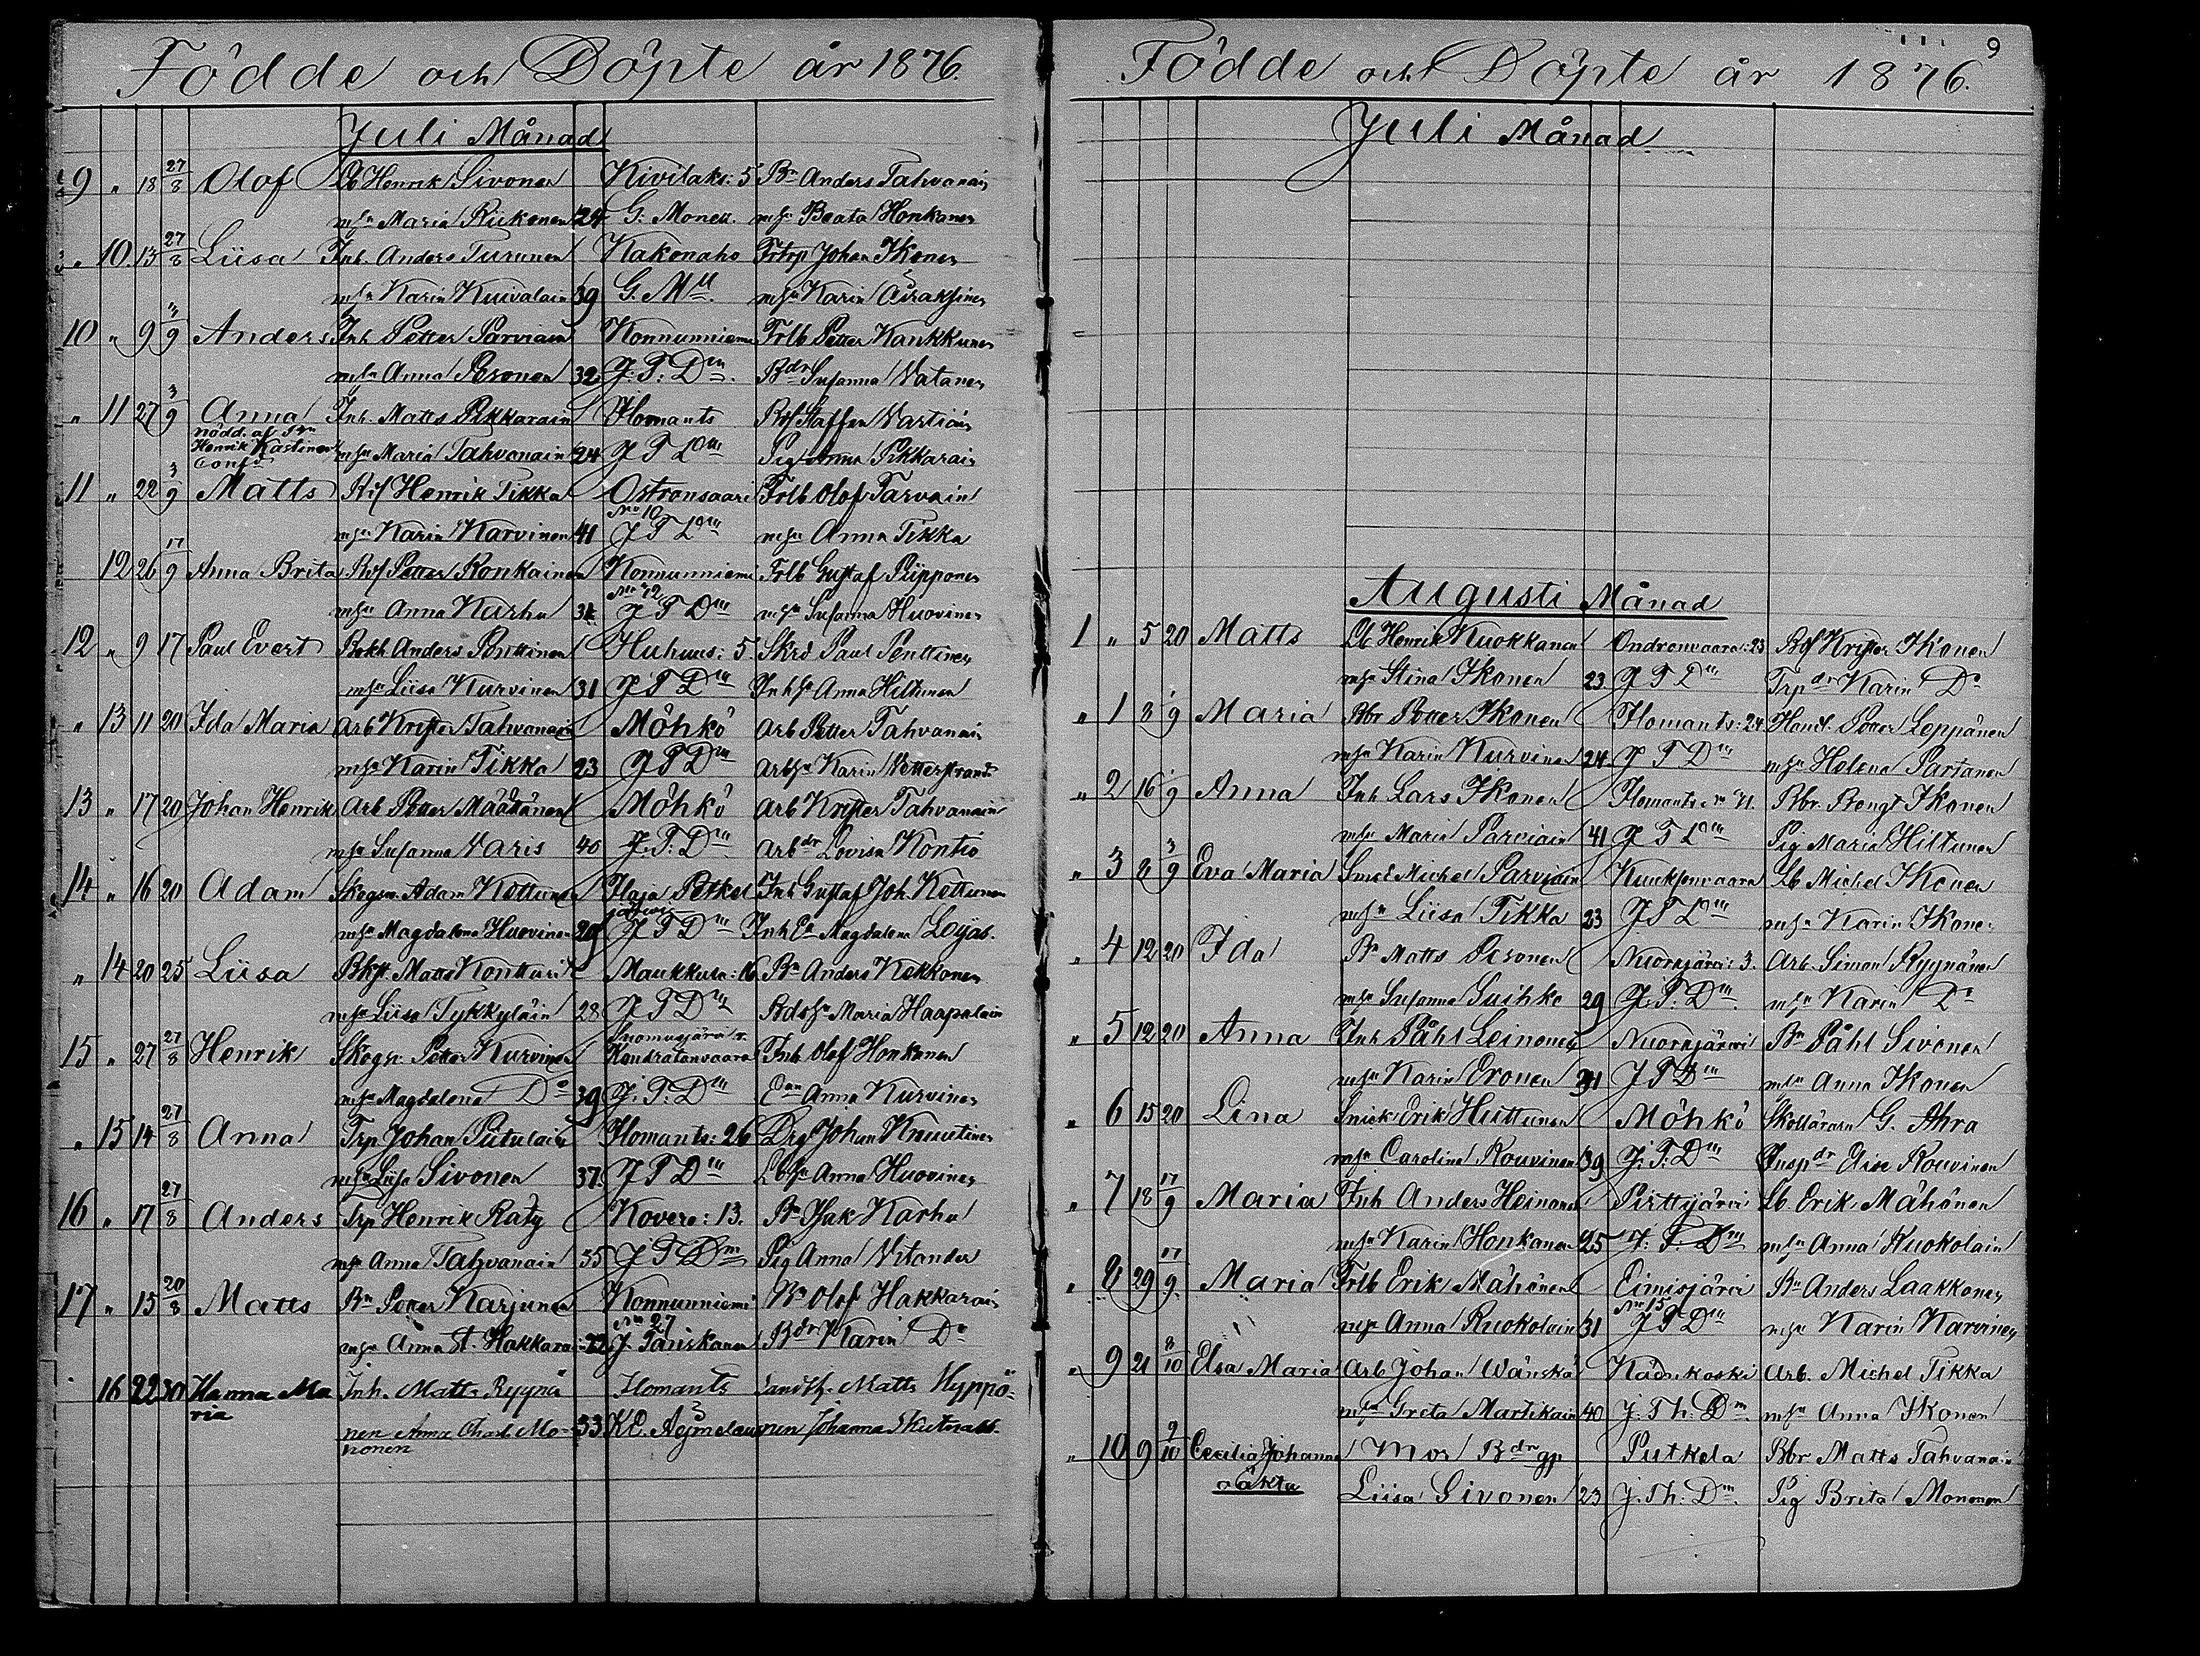 Födde och Döpte år 1876.
Juli Månad
9 " 18 27/8 Olof Lb Henrik Sivonen Kivilaks: 5 Bn Anders Tahvanain
mhu Maria Riikonen 24 G. Monell. mhu Beata Honkanen
" 10. 13 27/8 Liisa Inh. Anders Turunen Kakonaho Frtrp Johan Ikonen
mhu Karin Kuivalain 39 G. Mll. mhu Karin Asraksinen
10 " 9 "/9 Anders Inh Petter Parviain Konnunniemi Frlb Petter Kaukkunen
mhu Anna Pesonen 32. J: T: Dm. Bdr Susanna Vatanen
" 11 27 3/9 Anna Inh. Matts Pikkarain Ilomants Staffan Vartiain
nödd. af
Henrik Kastinen mhu Maria Tahvanain 24 J T Dm Pig Anna Pikkarain
Conf
11 " 22 3/9 Matts Henrik Tikka Ostronsaari Frlb Olof Tarvain
No 10
mhu Karin Karvinen 41 J T Dm mhu Anna Tikka
12 26 17/9 Anna Brita Petter Ronkainen Konnunniemi Frlb Gustaf Piipponen
No 12
mhu Anna Karhu 34 J T Dm mhu Susanna Huovinen
12 " 9 17 Paul Evert Bokh Anders Penttinen Huhus: 5. Skrd Paul Penttinen
mhu Liisa Kurvinen 31 J T Dm Inhhu Anna Hiltunen
" 13 11 20 Ida Maria Arb Krister Tahvanain Möhkö Arb Petter Tahvanain
mhu Karin Tikka 23 J T Dm Arbhu Karin Vetterstrand
13 " 17 20 Johan Henrik Arb Petter Määttänen Möhkö Arb Krister Tahvanain
mhu Susanna Varis 40 J. T. Dm Arbdr Lovisa Kontio
14 " 16 20 Adam Skogsv. Adam Kettunen Ilaja Petkel Inh Gustaf Joh. Kettunen
järvi
mhu Magdalena Huovinen 29 J T Dm Inh Magdalena Lojas.
" 14 20 25 Liisa Bkst. Matts Kontturi Maukkula: 16 Bn Anders Kokkonen
mhu Liisa Tykkyläin 28 J T Dm Maria Haapalain
Suomusjärvi
15 " 27 27/8 Henrik Skogv. Petter Kurvinen Kondratanvaara Inh. Olof Honkanen
mhu Magdalena Do 39 J. T. Dm Anna Kurvinen
" 15 14 27/8 Anna Trp Johan Piitulain Ilomants: 26 Drg Johan Knuutinen
mhu Liisa Sivonen 37. J T Dm Lbhu Anna Huovinen
16 " 17 27/8 Anders Trp Henrik Räty Kovero: 13. Bn Isak Karhu
mhu Anna Tahvanain 35 J T Dm Pig Anna Vitander
17 " 15 20/8 Matts Bn Petter Karjunen Konnunniemi Bn Olof Hakkarain
No 27
mhu Anna St. Hakkarain 22 J. Paniskanen Bdr Karin Do
16 22 30 Hanna Ma Inh. Matts Ryynä Ilomants Matts Hyppö-
ria nen Anna Charl. Mo- 33 K.E. Aejmelaeus nen Johanna Skutnabb.
nonen

9
Födde och Döpte år 1876.
Juli Månad
Augusti Månad
1 " 5 20 Matts Lb Henrik Kuokkanen Ondronvaara: 23 Krister Ikonen
mhu Stina Ikonen 23 J T Dm Trpdr Karin Do
" 1 8 1/9 Maria Bbr Petter Ikonen Ilomants: 24 Handl. Petter Leppänen
mhu Karin Kurvinen 24. J T Dm mhu Helena Partanen
" 2 16 1/9 Anna Inh Lars Ikonen Ilomants No 71. Bbr. Bengt Ikonen
mhu Maria Parviain 41 J T Dm Pig Maria Hiltunen
" 3 8 3/9 Eva Maria Smed Michel Parviain Kuuksenvaara Lb Michel Ikonen
mhu Liisa Tikka 23 J T Dm mhu Karin Ikonen
" 4 12 20 Ida Bn Matts Pesonen Nuorajärvi: 3. Arb. Simon Ryynänen
mhu Susanna Suihko 29 J. T. Dm mhu Karin Do
" 5 12 20 Anna Inh Påhl Leinonen Nuorajärvi Bn Påhl Sivonen
mhu Karin Eronen 31 J T Dm mhu Anna Ikonen
" 6 15 20 Lina Snick. Erik Huttunen Möhkö Skollärarn G. Ahra
mhu Carolina Rouvinen 39 J. T: Dm Inspdr Aise Rouvinen
" 7 18 17/9 Maria Inh Anders Heinonen Pirttijärvi Lb. Erik Mähönen
mhu Karin Honkanen 25 J: T: Dm mhu Anna Kuokolain
" 8 29 17/9 Maria Frlb Erik Mähönen Eimisjärvi Bn Anders Laakkonen
No 15
mhu Anna Ruokolain 31 J T Dm mhu Karin Karvinen
" 9 21 8/10 Elsa Maria Arb Johan Wänskä Käänkoski Arb. Michel Tikka
mhu Greta Martikain 40 J. Th: Dm. mhu Anna Ikonen
" 10 9 9/10 Cecilia Johanna Mor Bdr gp Putkela Bbr Matts Tahvanain
oäkta Liisa Sivonen 23 J. Th: Dm. Pig Brita Mononen